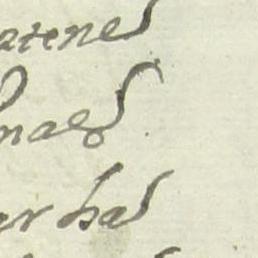 atenes
naes
er has